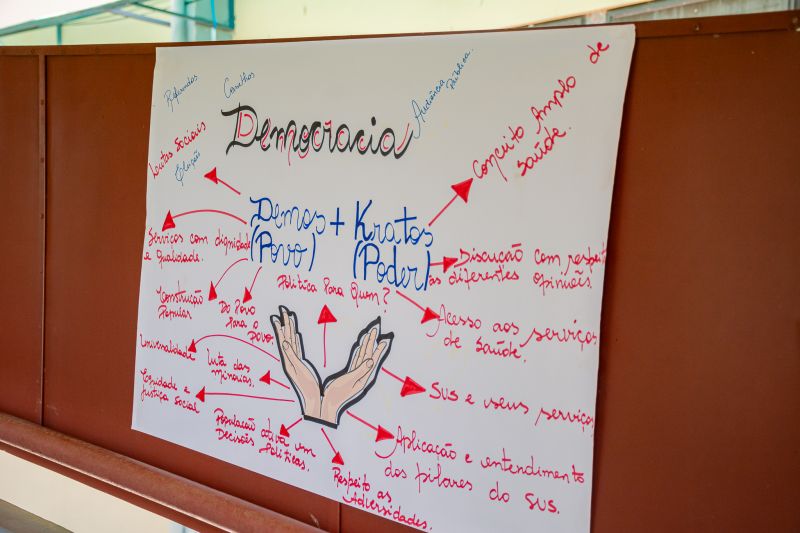 Referendos
Conselhos
Audiência
Pública.
Democracia
Lutas Sociais
Eleição
Conceito Amplo de
Saúde.
Demos + Kratos
(Povo) (Poder)
Serviços com dignidade
e Qualidade.
Discução com respeito
as diferentes opiniões.
Construção
Popular
Do Povo
Para o
Povo.
Política Para Quem?
Acesso aos serviços
de Saúde.
Universalidade
Luta das
Minorias.
Equidade e
Justiça Social
SUS e seus serviços
População ativa em
Decisões Políticas.
Respeito as
Adversidades.
Aplicação e entendimento
dos pilares do SUS.